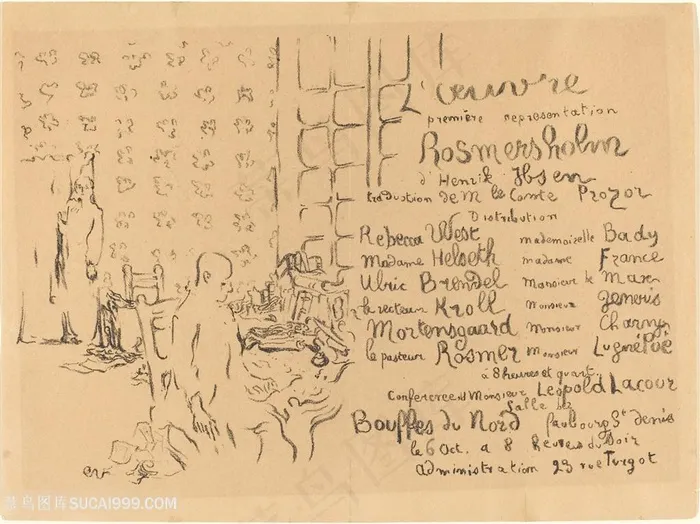 L'œuvre
première representation
Rosmersholm
d'Henrik Ibsen
traduction de M le Comte Prozor
Distribution
Rebecca West mademoiselle Bady
madame Helseth madame France
Ulric Brendel Monsieur de Max
le recteur Kroll Monsieur
Mortensgaard Monsieur Charny
le pasteur Rosmer Monsieur Lugné Poë
à 8 heures et quart
Conference Monsieur Léopold Lacour
Salle des
Bouffes du Nord faubourg St denis
le 6 Oct. a 8 heures du soir
administration 23 rue Turgot
ev
图库 SUCAI999.COM